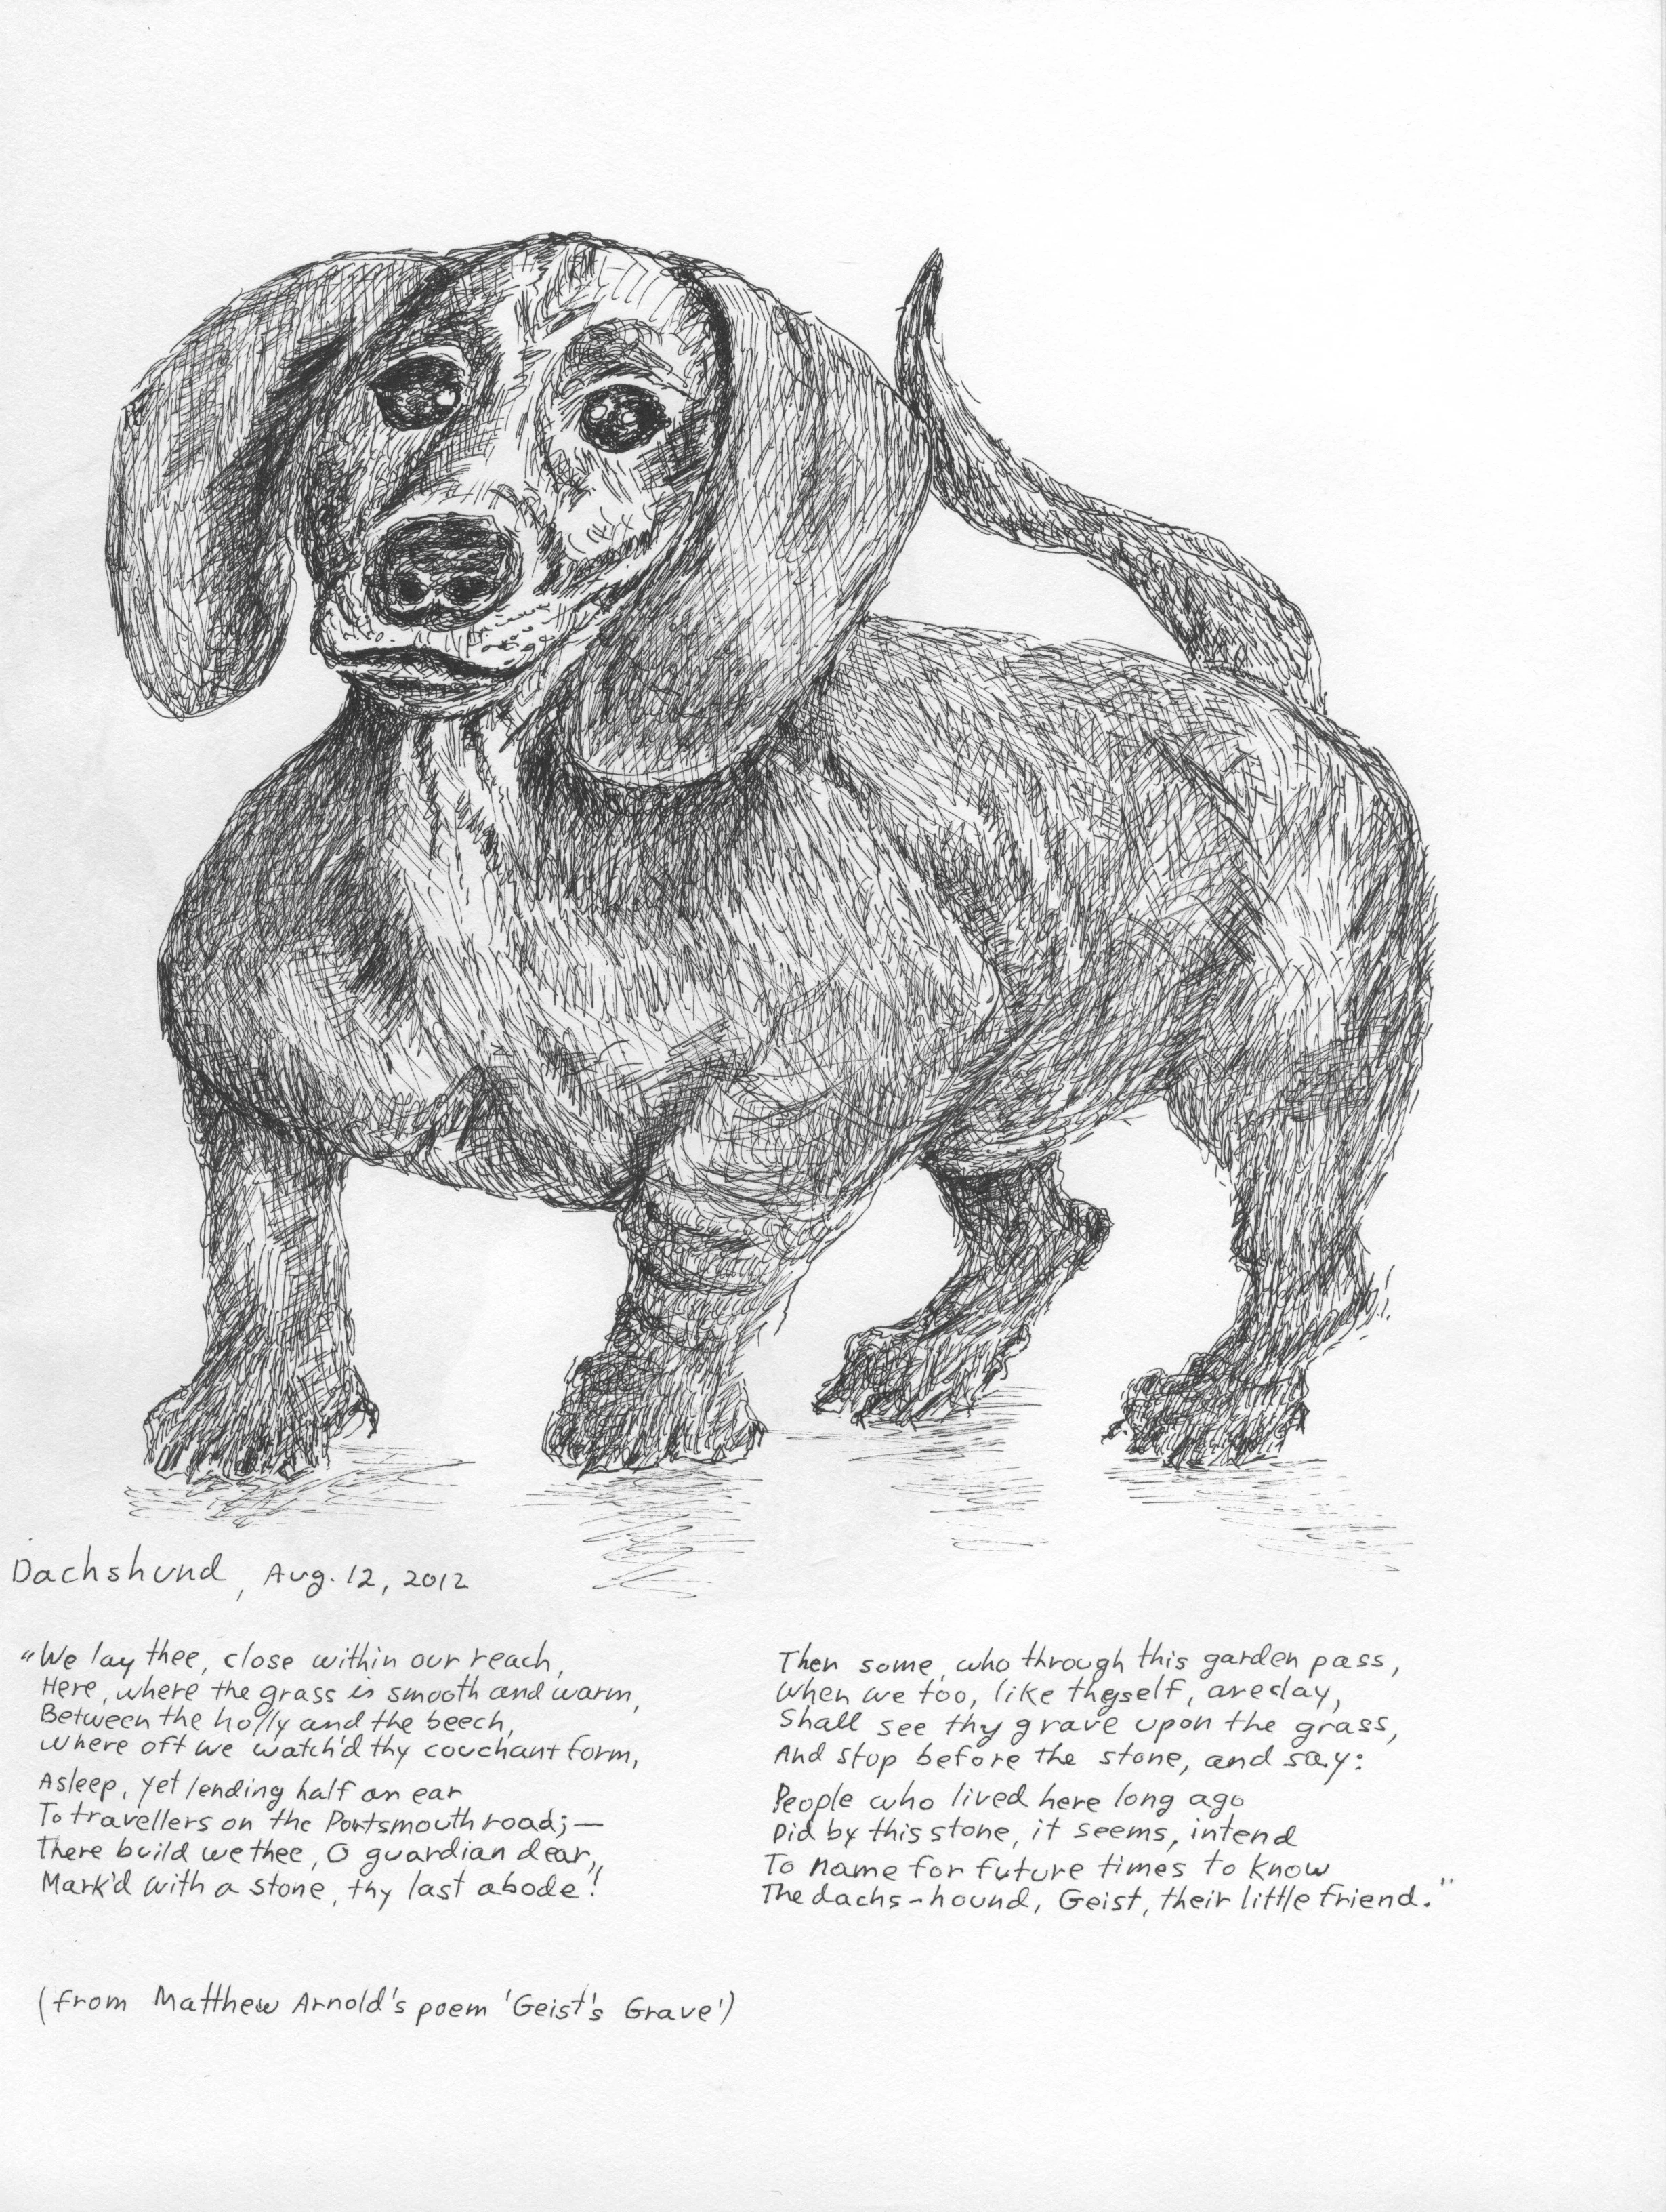 Dachshund, Aug. 12, 2012
"We lay thee, close within our reach,
Here, where the grass is smooth and warm,
Between the holly and the beech,
Where oft we watch'd thy couchant form,
Asleep, yet lending half an ear
To travellers on the Portsmouth road;—
There build we thee, O guardian dear,
Mark'd with a stone, thy last abode!
Then some, who through this garden pass,
When we too, like thyself, are clay,
Shall see thy grave upon the grass,
And stop before the stone, and say:
People who lived here long ago
Did by this stone, it seems, intend
To name for future times to know
The dachs-hound, Geist, their little friend."
(from Matthew Arnold's poem 'Geist's Grave')